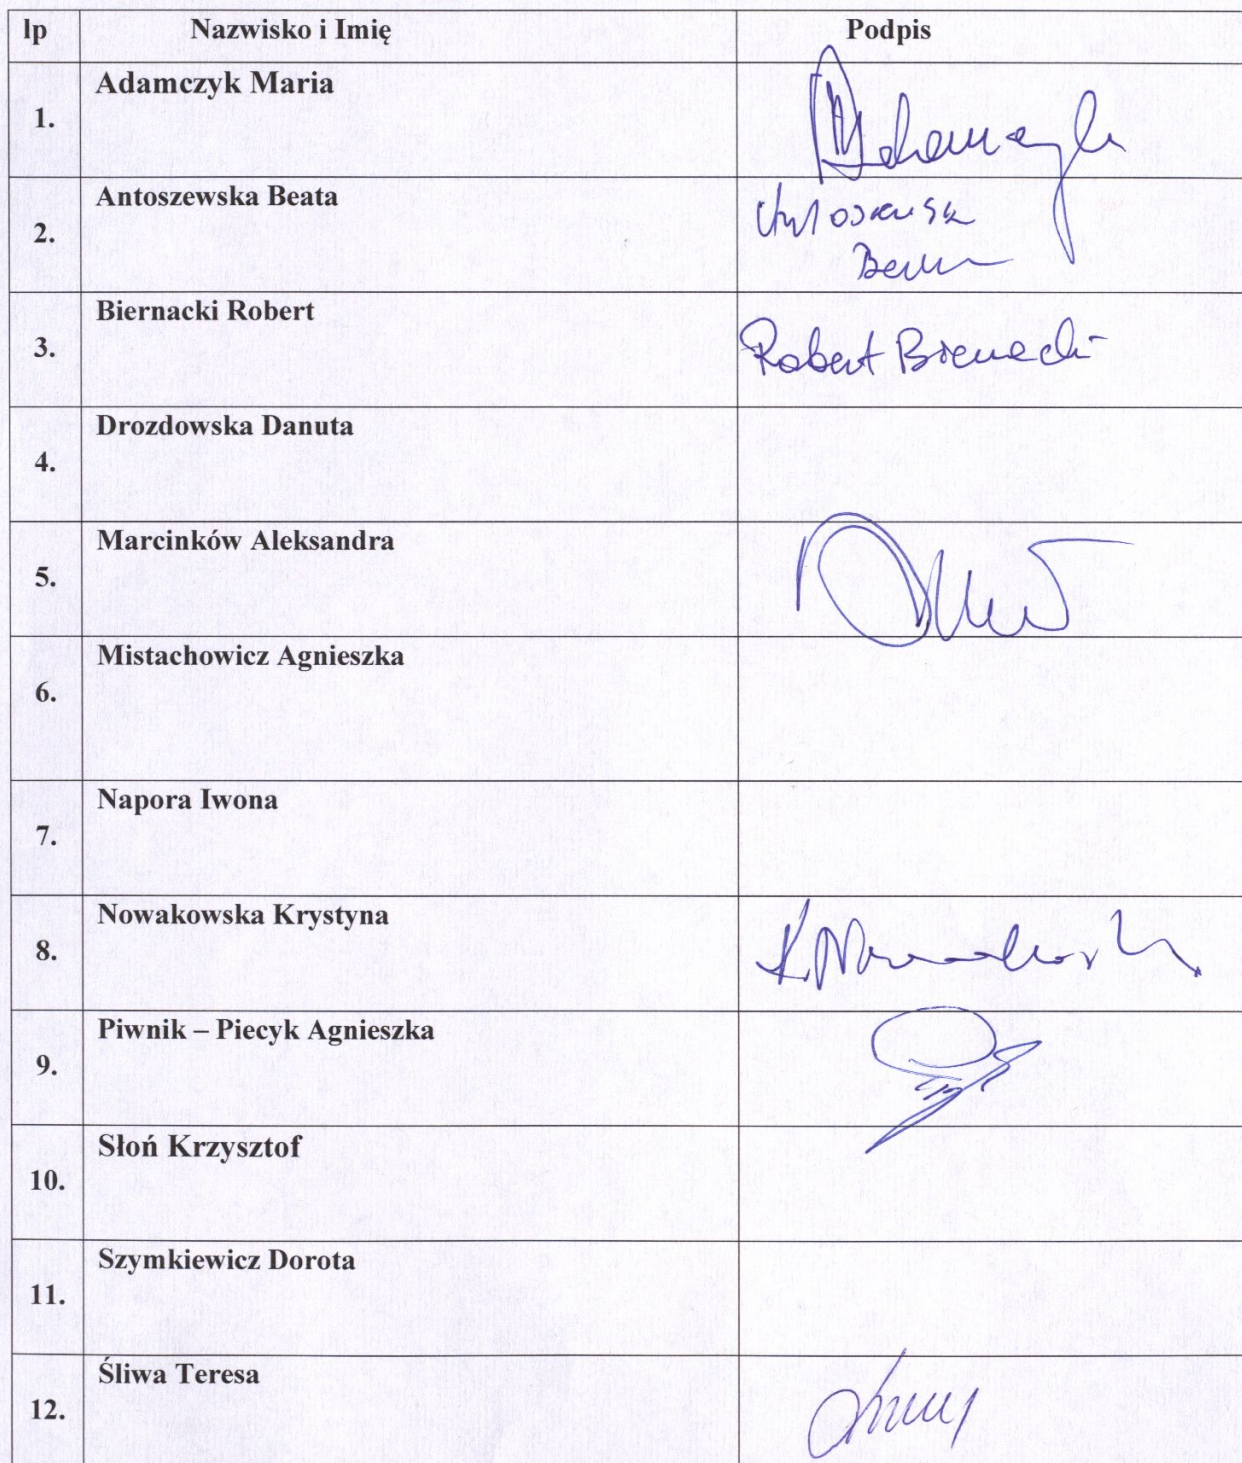 lp Nazwisko i Imię Podpis
1. Adamczyk Maria Adamczyk
2. Antoszewska Beata
3. Biernacki Robert Robert Biernacki
4. Drozdowska Danuta
5. Marcinków Aleksandra
6. Mistachowicz Agnieszka
7. Napora Iwona
8. Nowakowska Krystyna K. Nowakowska
9. Piwnik – Piecyk Agnieszka
10. Słoń Krzysztof
11. Szymkiewicz Dorota
12. Śliwa Teresa